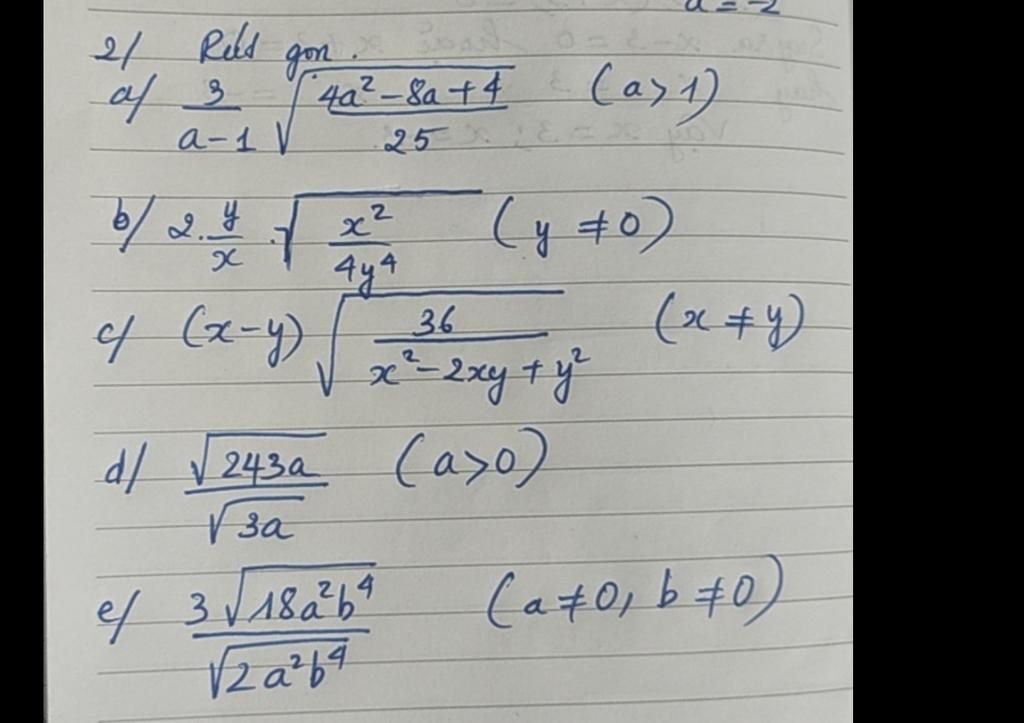 a = -2
2/ Rút gọn.
a/ 3/(a-1) √((4a² - 8a + 4)/25) (a > 1)
b/ 2. y/x . √(x²/(4y⁴)) (y ≠ 0)
c/ (x-y) √(36/(x² - 2xy + y²)) (x ≠ y)
d/ √(243a)/√(3a) (a > 0)
e/ 3√(18a²b⁴)/√(2a²b⁴) (a ≠ 0, b ≠ 0)